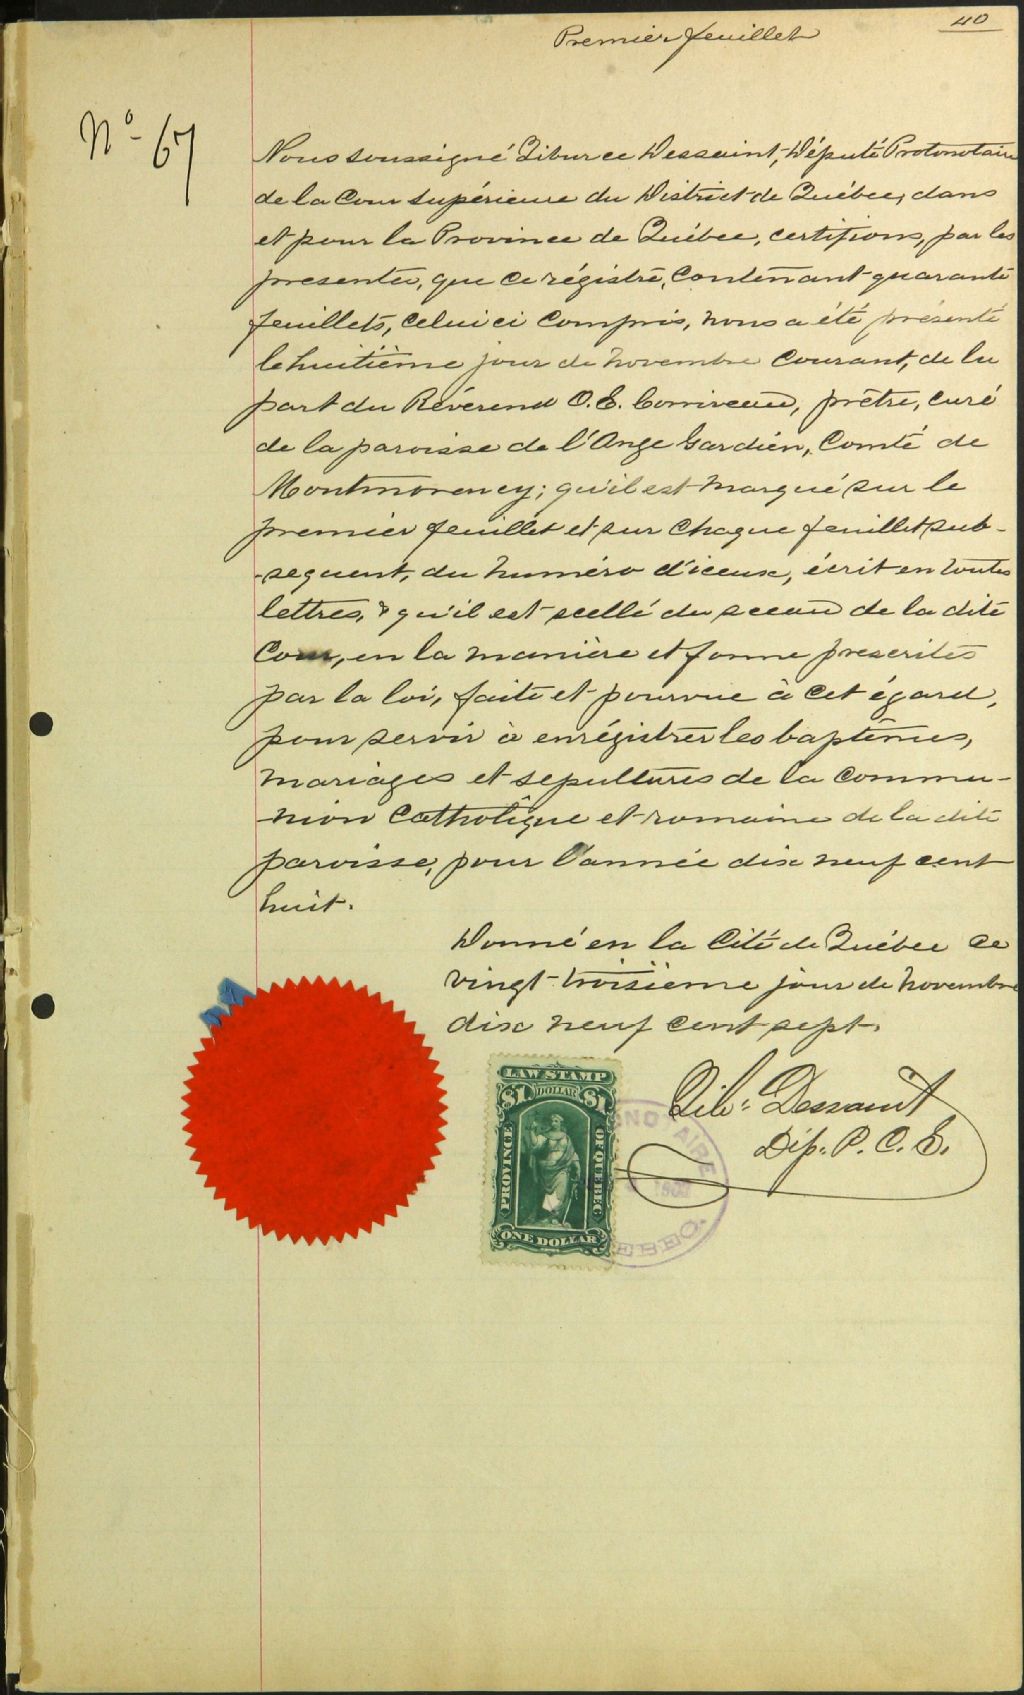 40
Premier feuillet
No 67
Nous soussigné Tiburce Dessaint, Député Protonotaire
de la Cour Supérieure du District de Québec, dans
et pour la Province de Québec, certifions, par les
presentes, que ce régistre, contenant quarante
feuillets, celui ci compris, nous a été présenté
le huitième jour de Novembre courant, de la
part du Révérend O. E. Corriveau, prêtre, curé
de la paroisse de l'Ange Gardien, Comté de
Montmorency; qu'il est marqué sur le
premier feuillet et sur chaque feuillet sub-
-sequent, du numéro d'iceux, écrit en toutes
lettres, & qu'il est scellé du sceau de la dite
Cour, en la manière et forme prescrites
par la loi, faite et pourvue à cet égard,
pour servir à enrégistrer les baptêmes,
mariages et sepultures de la commu-
-nion Catholique et romaine de la dite
paroisse, pour l'année dix neuf cent
huit.
Donné en la Cité de Québec ce
vingt-troisième jour de Novembre
dix neuf cent sept.
Tib: Dessaint
Dép. P. C. S.
LAW STAMP
$1 DOLLAR $1
PROVINCE OF QUEBEC
ONE DOLLAR